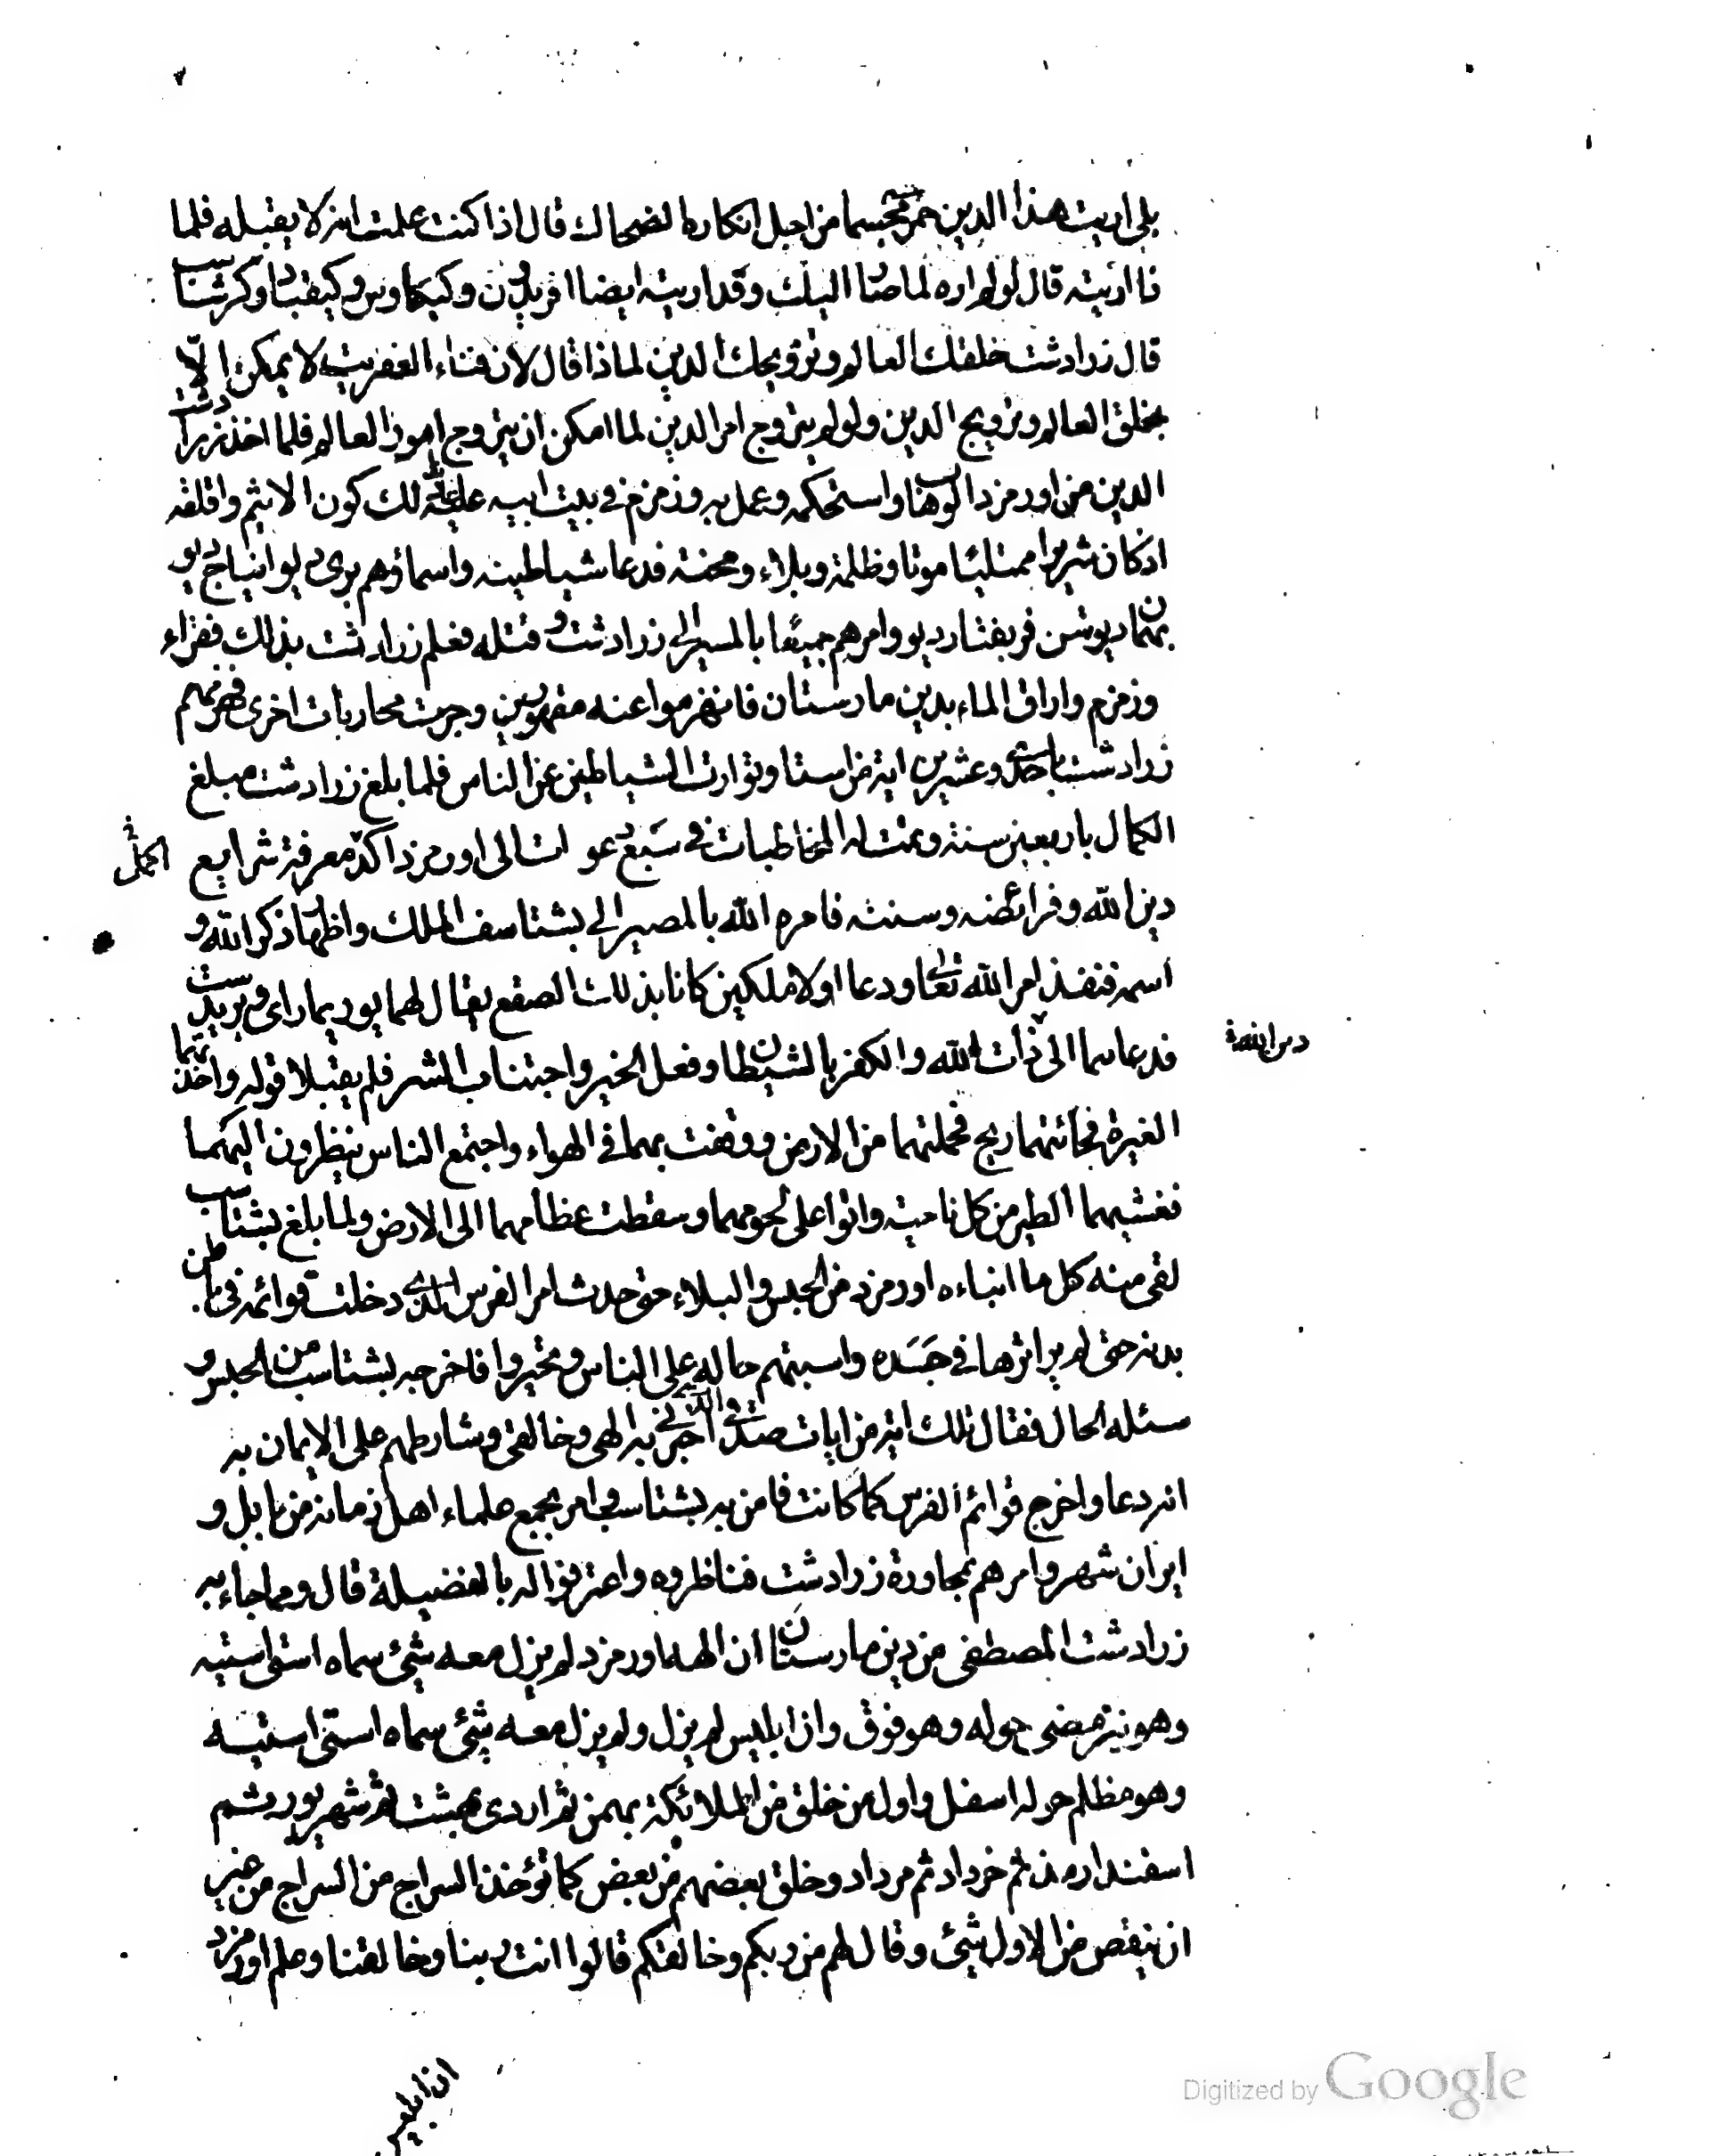 بلى اريت هذا الدين جم مجسما من اجل انكاره الضحاك قال اذا كنت علمت انه لا يقبله فلما
ذا اريته قال لو لم اره لما صار اليك وقد اريته ايضا افريدون وكيكاوس وكيقباد وكرشناسب
قال زرادشت خلقك العالم وترويجك الدين لماذا قال لان فناء العفريت لا يمكن الا
بخلق العالم وترويج الدين ولو لم يتروج امر الدين لما امكن ان يتروج امور العالم فلما اخذ زرادشت
الدين من اورمزد الوهاب واستحكمه وعمل به وزمزم في بيت ابيه على ذلك كون الاثيم واقلقه
اذ كان شريرا ممتليا موتا وظلمة وبلاء ومحنة فدعا شياطينه واسماؤهم بري ديو
ديوشن فريفتار ديو وامرهم جميعا بالمسير الى زرادشت وقتله فعلم زرادشت بذلك فقراء
وزمزم واراق الماء بدين مارستان فانهزموا عنه مقهورين وجرت محاربات اخرى فهزمهم
زرادشت باحدى وعشرين اية من استا وتوارت الشياطين عن الناس فلما بلغ زرادشت مبلغ
الكمال باربعين سنة وتمت له المخاطبات في سبع عو ات الى اورمزد اكمل معرفة شرايع
دين الله وفرائضه وسننه فامره الله بالمصير الى بشتاسف الملك واظهار ذكر الله و
اسمه فنفذ امر الله تعالى ودعا اولا ملكين كانا بذلك الصقع يقال لهما يوربماراى وبريدست
فدعاهما الى ذات الله والكفر بالشيطان وفعل الخير واجتناب الشر فلم يقبلا قوله واخذتهما
الغيرة فجائتهما ريح فحملتهما من الارض ووقفت بهما في الهواء واجتمع الناس ينظرون اليهما
فغشيهما الطير من كل ناحية واتوا على لحومهما وسقطت عظامهما الى الارض ولما بلغ بشتاسب
لقى منه كل ما انباءه اورمزد من الحبس والبلاء حتى حدث امر الفرس الذي دخلت قوائمه في باطن
بدنه حتى لم ير اثرها في جسده واستبهم حاله على الناس وتحيروا فاخرجه بشتاسب من الحبس و
سئله الحال فقال تلك اية من ايات صدقي والذي اخبرني به الهي وخالقي وشارطهم على الايمان به
انه دعا واخرج قوائم الفرس كما كانت فامن به بشتاسب وامر بجمع علماء اهل زمانه من بابل و
ايران شهر وامرهم بمحاورة زرادشت فناظروه واعترفوا له بالفضيلة قال ومما جاء به
زرادشت المصطفى من دين مارستان ان الهه اورمزد لم يزل معه شئ سماه استى استيه
وهو نير مضى حوله وهو فوق وان ابليس لم يزل ولم يزل معه شئ سماه استى استيه
وهو مظلم حوله اسفل واول من خلق من الملائكة بهمن ثم اردى بهشت ثم شهريور ثم
اسفندارمذ ثم خرداد ثم مرداد وخلق بعضهم من بعض كما تؤخذ السراج من السراج من غير
ان ينقص من الاول شئ وقال لهم من ربكم وخالقكم قالوا انت ربنا وخالقنا وعلم اورمزد
ان ابليس
Digitized by Google